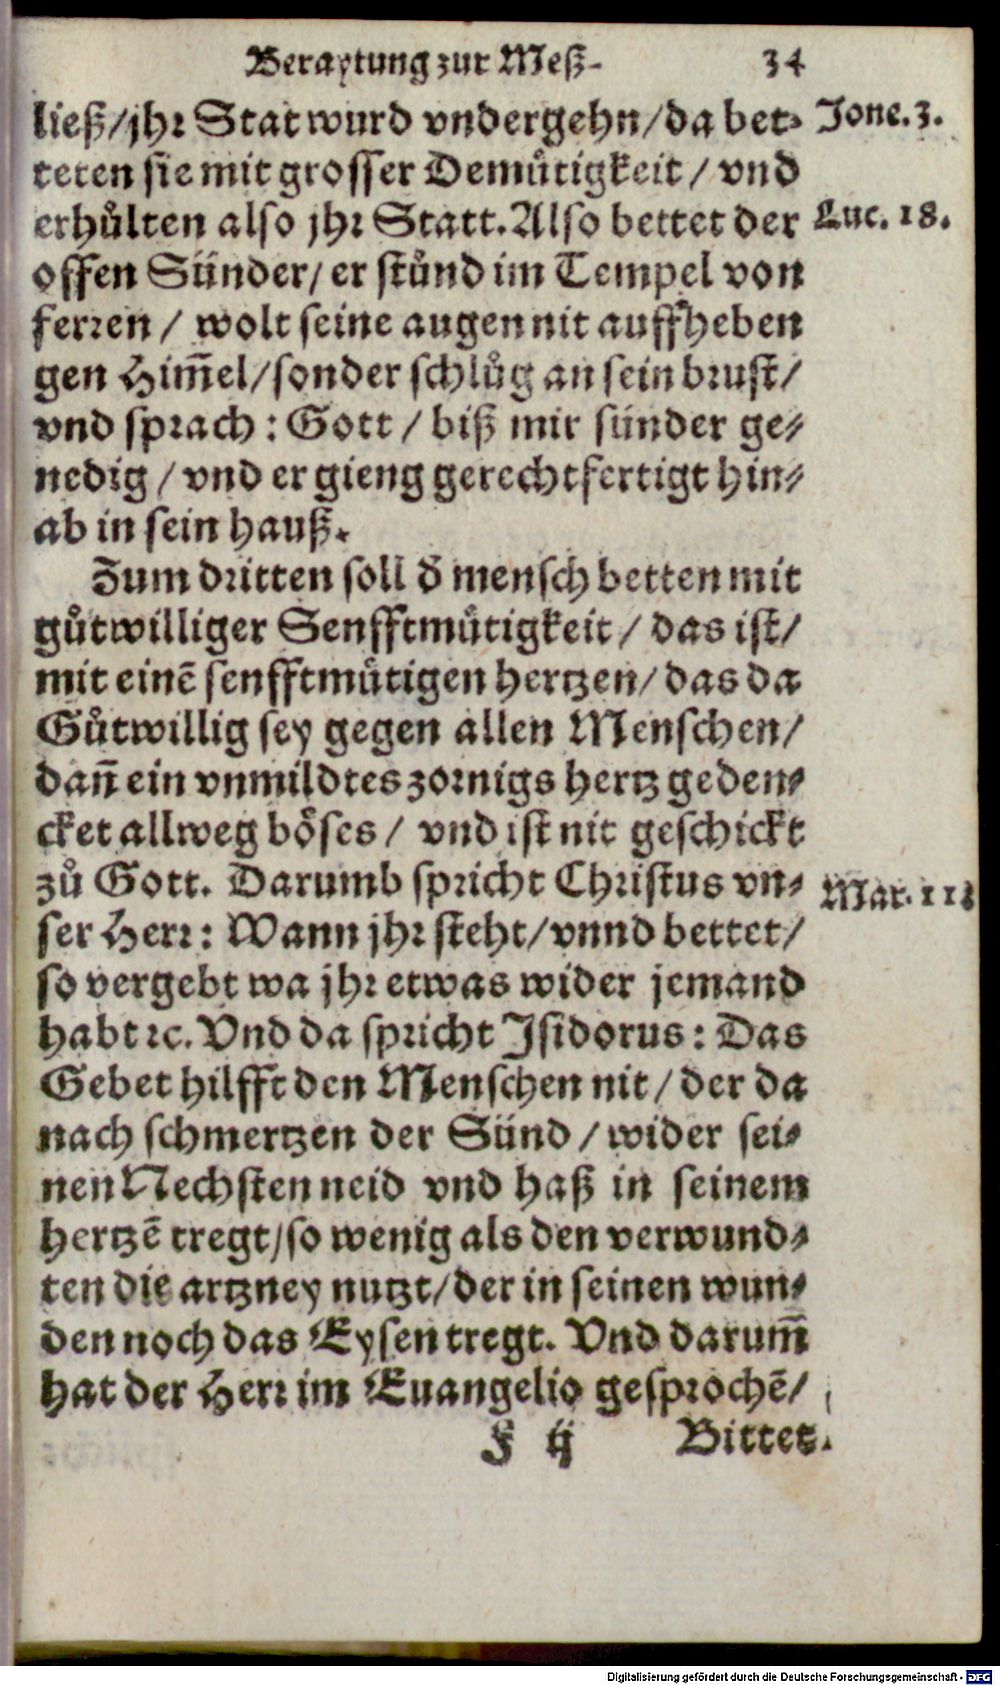 Beraytung zur Meß. 34
ließ/jhr Stat wurd vndergehn/da bet- Jone. 3.
teten sie mit grosser Demuͤtigkeit/vnd
erhuͤlten also jhr Statt. Also bettet der Luc. 18.
offen Sünder/er stuͤnd im Tempel von
ferren/wolt seine augen nit auffheben
gen Him̃el/sonder schluͦg an sein brust/
vnd sprach: Gott/biß mir sünder ge-
nedig/vnd er gieng gerechtfertigt hin-
ab in sein hauß.
Zum dritten soll d̕ mensch betten mit
guͦtwilliger Senfftmuͤtigkeit/das ist/
mit einẽ senfftmuͤtigen hertzen/das da
Guͦtwillig sey gegen allen Menschen/
dañ ein vnmildtes zornigs hertz geden-
cket allweg boͤses/vnd ist nit geschickt
zuͦ Gott. Darumb spricht Christus vn- Mar. 11.
ser Herr: Wann jhr steht/vnnd bettet/
so vergebt wa jhr etwas wider jemand
habt ꝛc. Vnd da spricht Isidorus: Das
Gebet hilfft den Menschen nit/der da
nach schmertzen der Sünd/wider sei-
nen Nechsten neid vnd haß in seinem
hertzẽ tregt/so wenig als den verwund-
ten die artzney nutzt/der in seinen wun-
den noch das Eysen tregt. Vnd darum̃
hat der Herr im Euangelio gesprochẽ/
F ij Bittet.
Digitalisierung gefördert durch die Deutsche Forschungsgemeinschaft - DFG